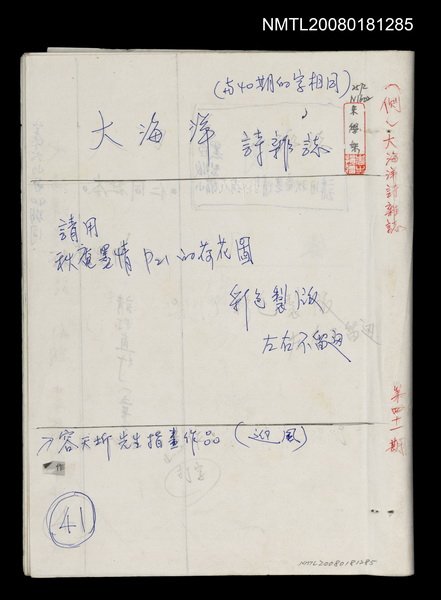 NMTL20080181285
(與40期的字相同)
大海洋 詩雜誌
朱學恕
(側)大海洋詩雜誌
請用
秋庵墨情 P21 的荷花圖
彩色製版
左右不留邊
第四十一期
容天圻先生指畫作品(迎風)
作
41
NMTL20080181285